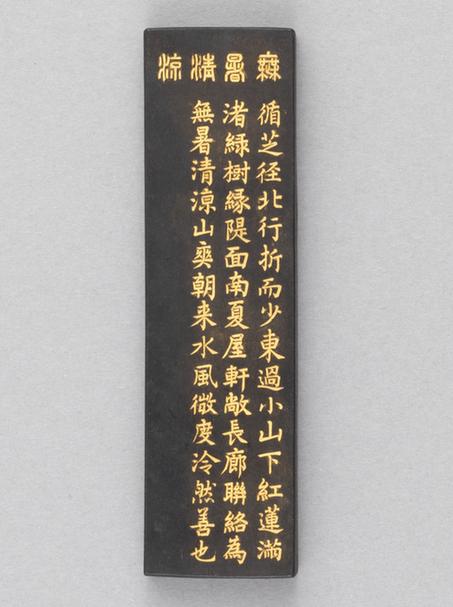 無暑清涼
循芝徑北行折而少東過小山下紅蓮滿
渚綠樹緣隄面南夏屋軒敞長廊聯絡為
無暑清涼山爽朝来水風微度泠然善也